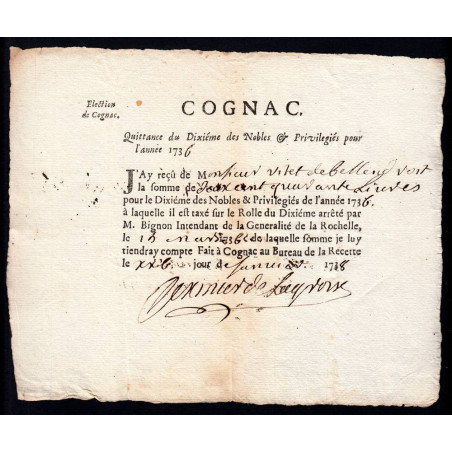 Election
de Cognac.
COGNAC.
Quittance du Dixiéme des Nobles & Privilegiés pour
l'année 1736
J'Ay reçû de Monsieur
la somme de quarante Livres
pour le Dixiéme des Nobles & Privilegiés de l'année 1736.
à laquelle il est taxé sur le Rolle du Dixiéme arrêté par
M. Bignon Intendant de la Generalité de la Rochelle,
le 1736 de laquelle somme je luy
tiendray compte Fait à Cognac au Bureau de la Recette
le jour de Janvier 1738